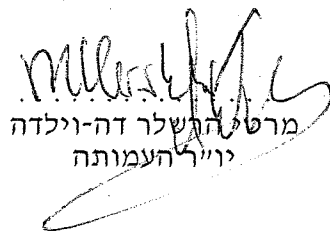 מרטי הרשלר דה-וילדה
יו״ר העמותה